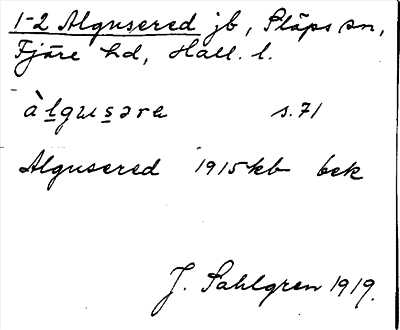 1-2 Algusered jb, Släps sn,
Fjäre hd, Hall. l.
àlgusəra s. 71
Algusered 1915 kb bek
J. Sahlgren 1919.